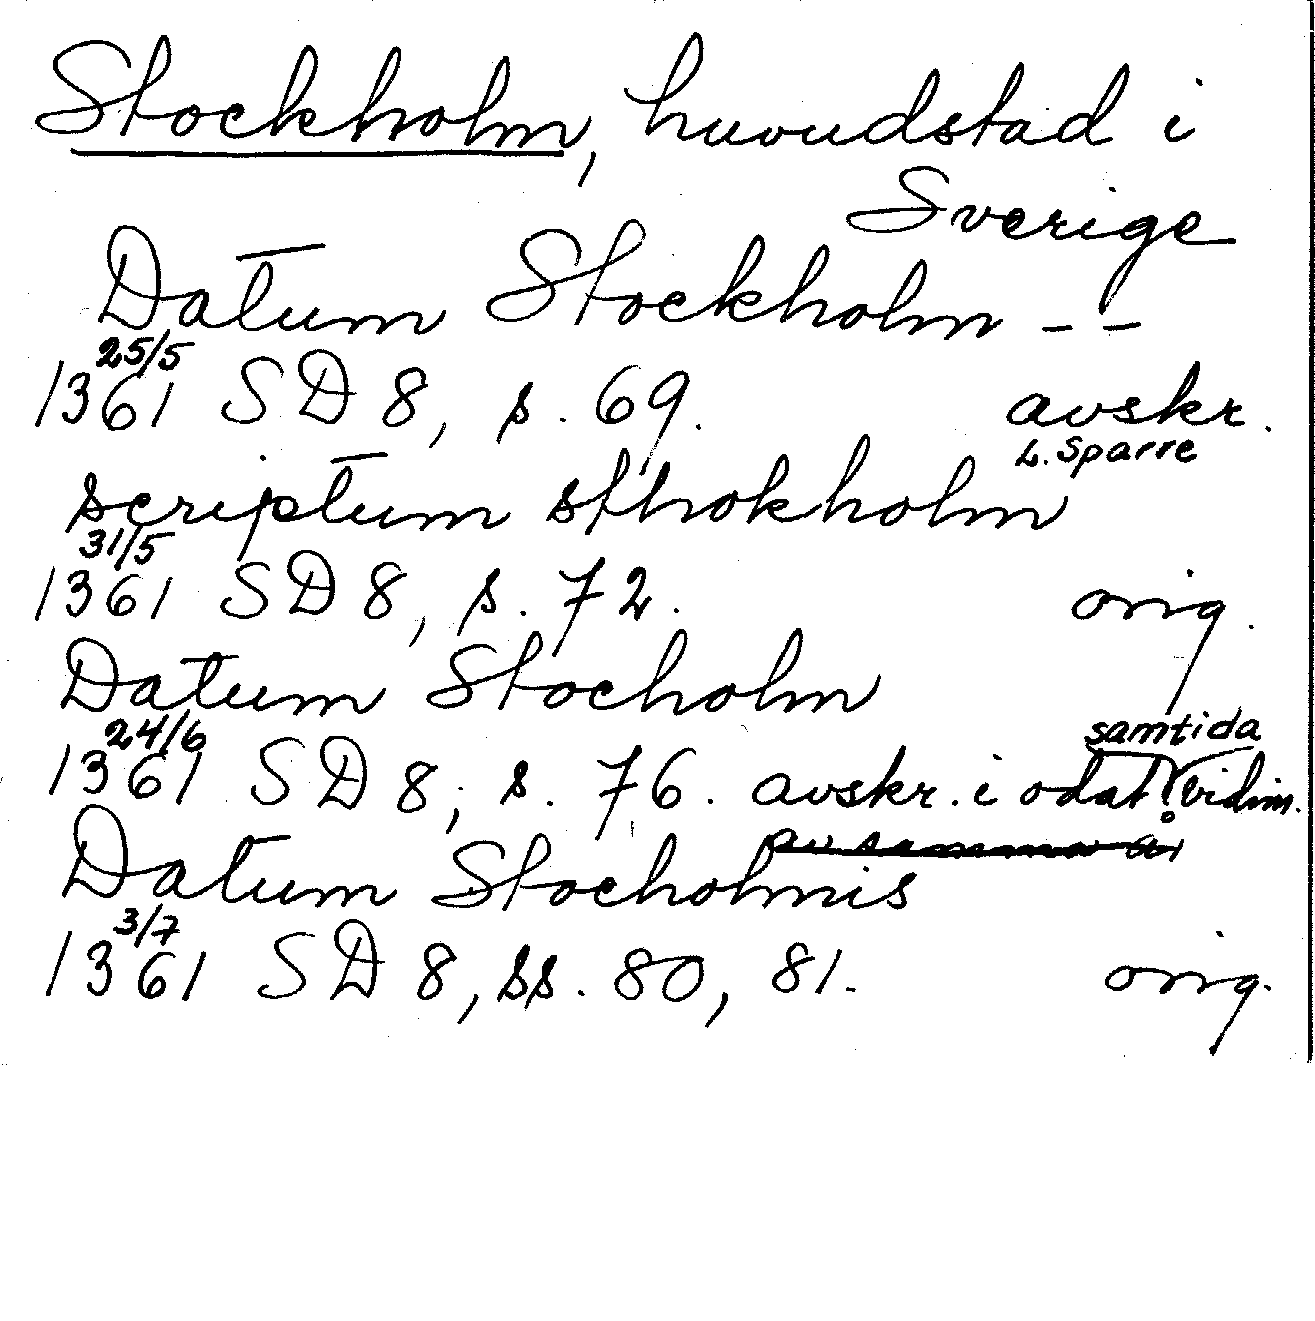 Stockholm, huvudstad i
Sverige
Datum Stockholm - -
25/5
1361 SD 8, s. 69. avskr.
L. Sparre
scriptum sthokholm
31/5
1361 SD 8, s. 72. orig.
Datum Stocholm
24/6 samtida
1361 SD 8, s. 76. avskr. i odat. vidim.
av samma å
Datum Stocholmis
3/7
1361 SD 8, ss. 80, 81. orig.